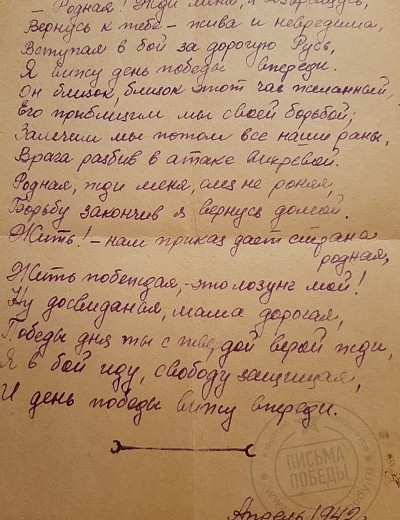 – Родная! Жди меня, я возвращусь,
Вернусь к тебе – жива и невредима,
Вступая в бой за дорогую Русь,
Я вижу день победы впереди.
Он близок, близок этот час желанный,
Его приблизим мы своей борьбой;
Залечим мы потом все наши раны,
Врага разбив в атаке вихревой.
Родная, жди меня, слез не роняя,
Борьбу закончив я вернусь домой.
Жить! – нам приказ дает страна
родная,
Жить побеждая, – это лозунг мой!
Ну досвиданья, мама дорогая,
Победы дня ты с твердой верой жди,
Я в бой иду, свободу защищая,
И день победы вижу впереди.
ПИСЬМА
ПОБЕДЫ
Апрель 1942г.